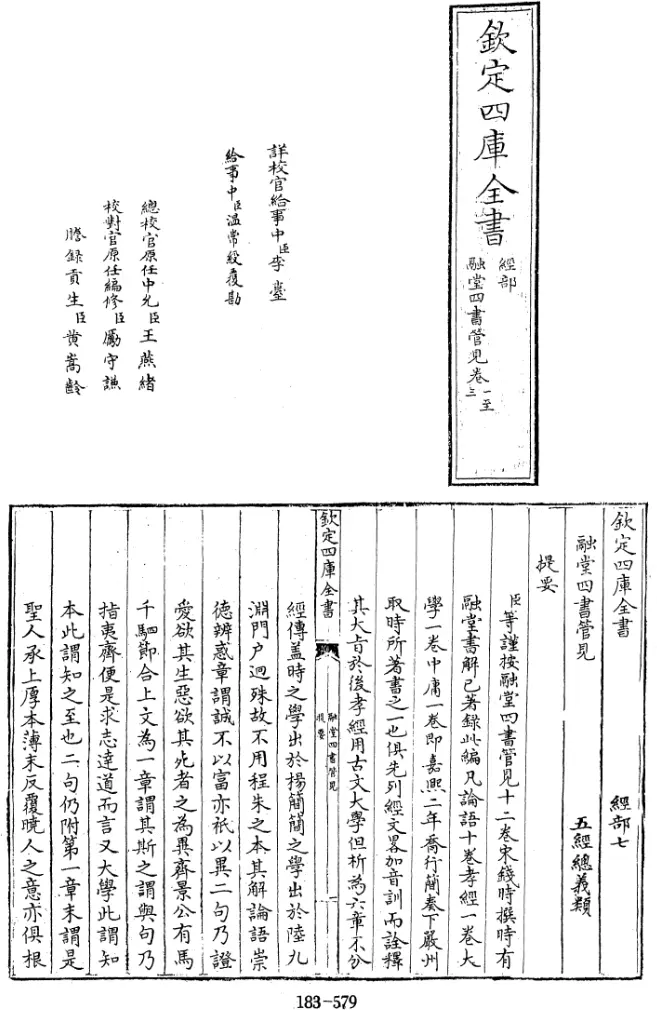 欽定四庫全書
經部
融堂四書管見卷一至三
詳校官給事中臣李鎏
給事中臣温常綬覆勘
總校官原任中允臣王燕緒
校對官原任編修臣勵守謙
謄録貢生臣黄嵩齡
欽定四庫全書 經部七
融堂四書管見 五經總義類
提要
臣等謹按融堂四書管見十二卷宋錢時撰時有
融堂書解已著録此編凡論語十卷孝經一卷大
學一卷中庸一卷即嘉熙二年喬行簡奏下嚴州
取時所著書之一也俱先列經文畧加音訓而詮釋
其大旨於後孝經用古文大學但析為六章不分
欽定四庫全書
融堂四書管見
提要
一
經傳蓋時之學出於楊簡簡之學出於陸九
淵門户迥殊故不用程朱之本其解論語崇
徳辨惑章謂誠不以富亦祇以異二句乃證
愛欲其生惡欲其死者之為異齊景公有馬
千駟節合上文為一章謂其斯之謂與句乃
指夷齊便是求志達道而言又大學此謂知
本此謂知之至也二句仍附第一章末謂是
聖人承上厚本薄末反覆曉人之意亦俱根
183-579